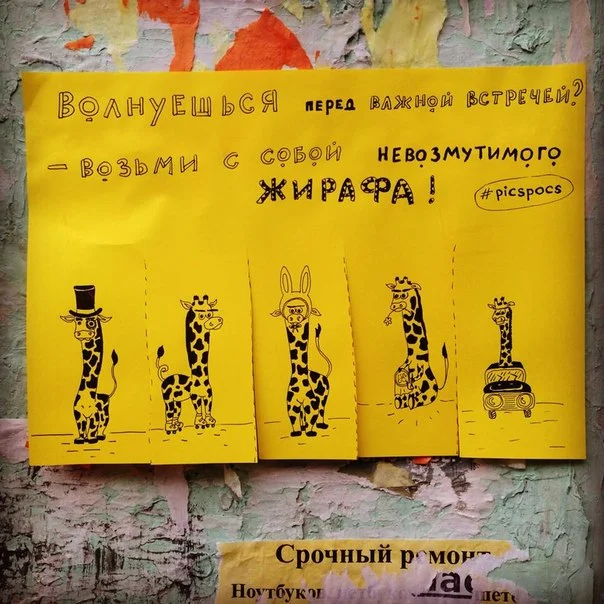 Волнуешься перед важной встречей?
– Возьми с собой невозмутимого
жирафа!
#picspocs
Срочный ремонт